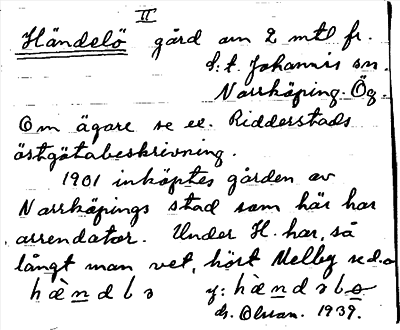 II
Händelö gård om 2 mtl fr.
S:t Johannis sn.
Norrköping. Ög.
Om ägare se ex. Ridderstads
östgötabeskrivning.
1901 inköptes gården av
Norrköpings stad som här har
arrendator. Under H. har, så
långt man vet, hört Melby se d.o
hà̀ndlə y: hàndələ
ds. Olsson. 1939.